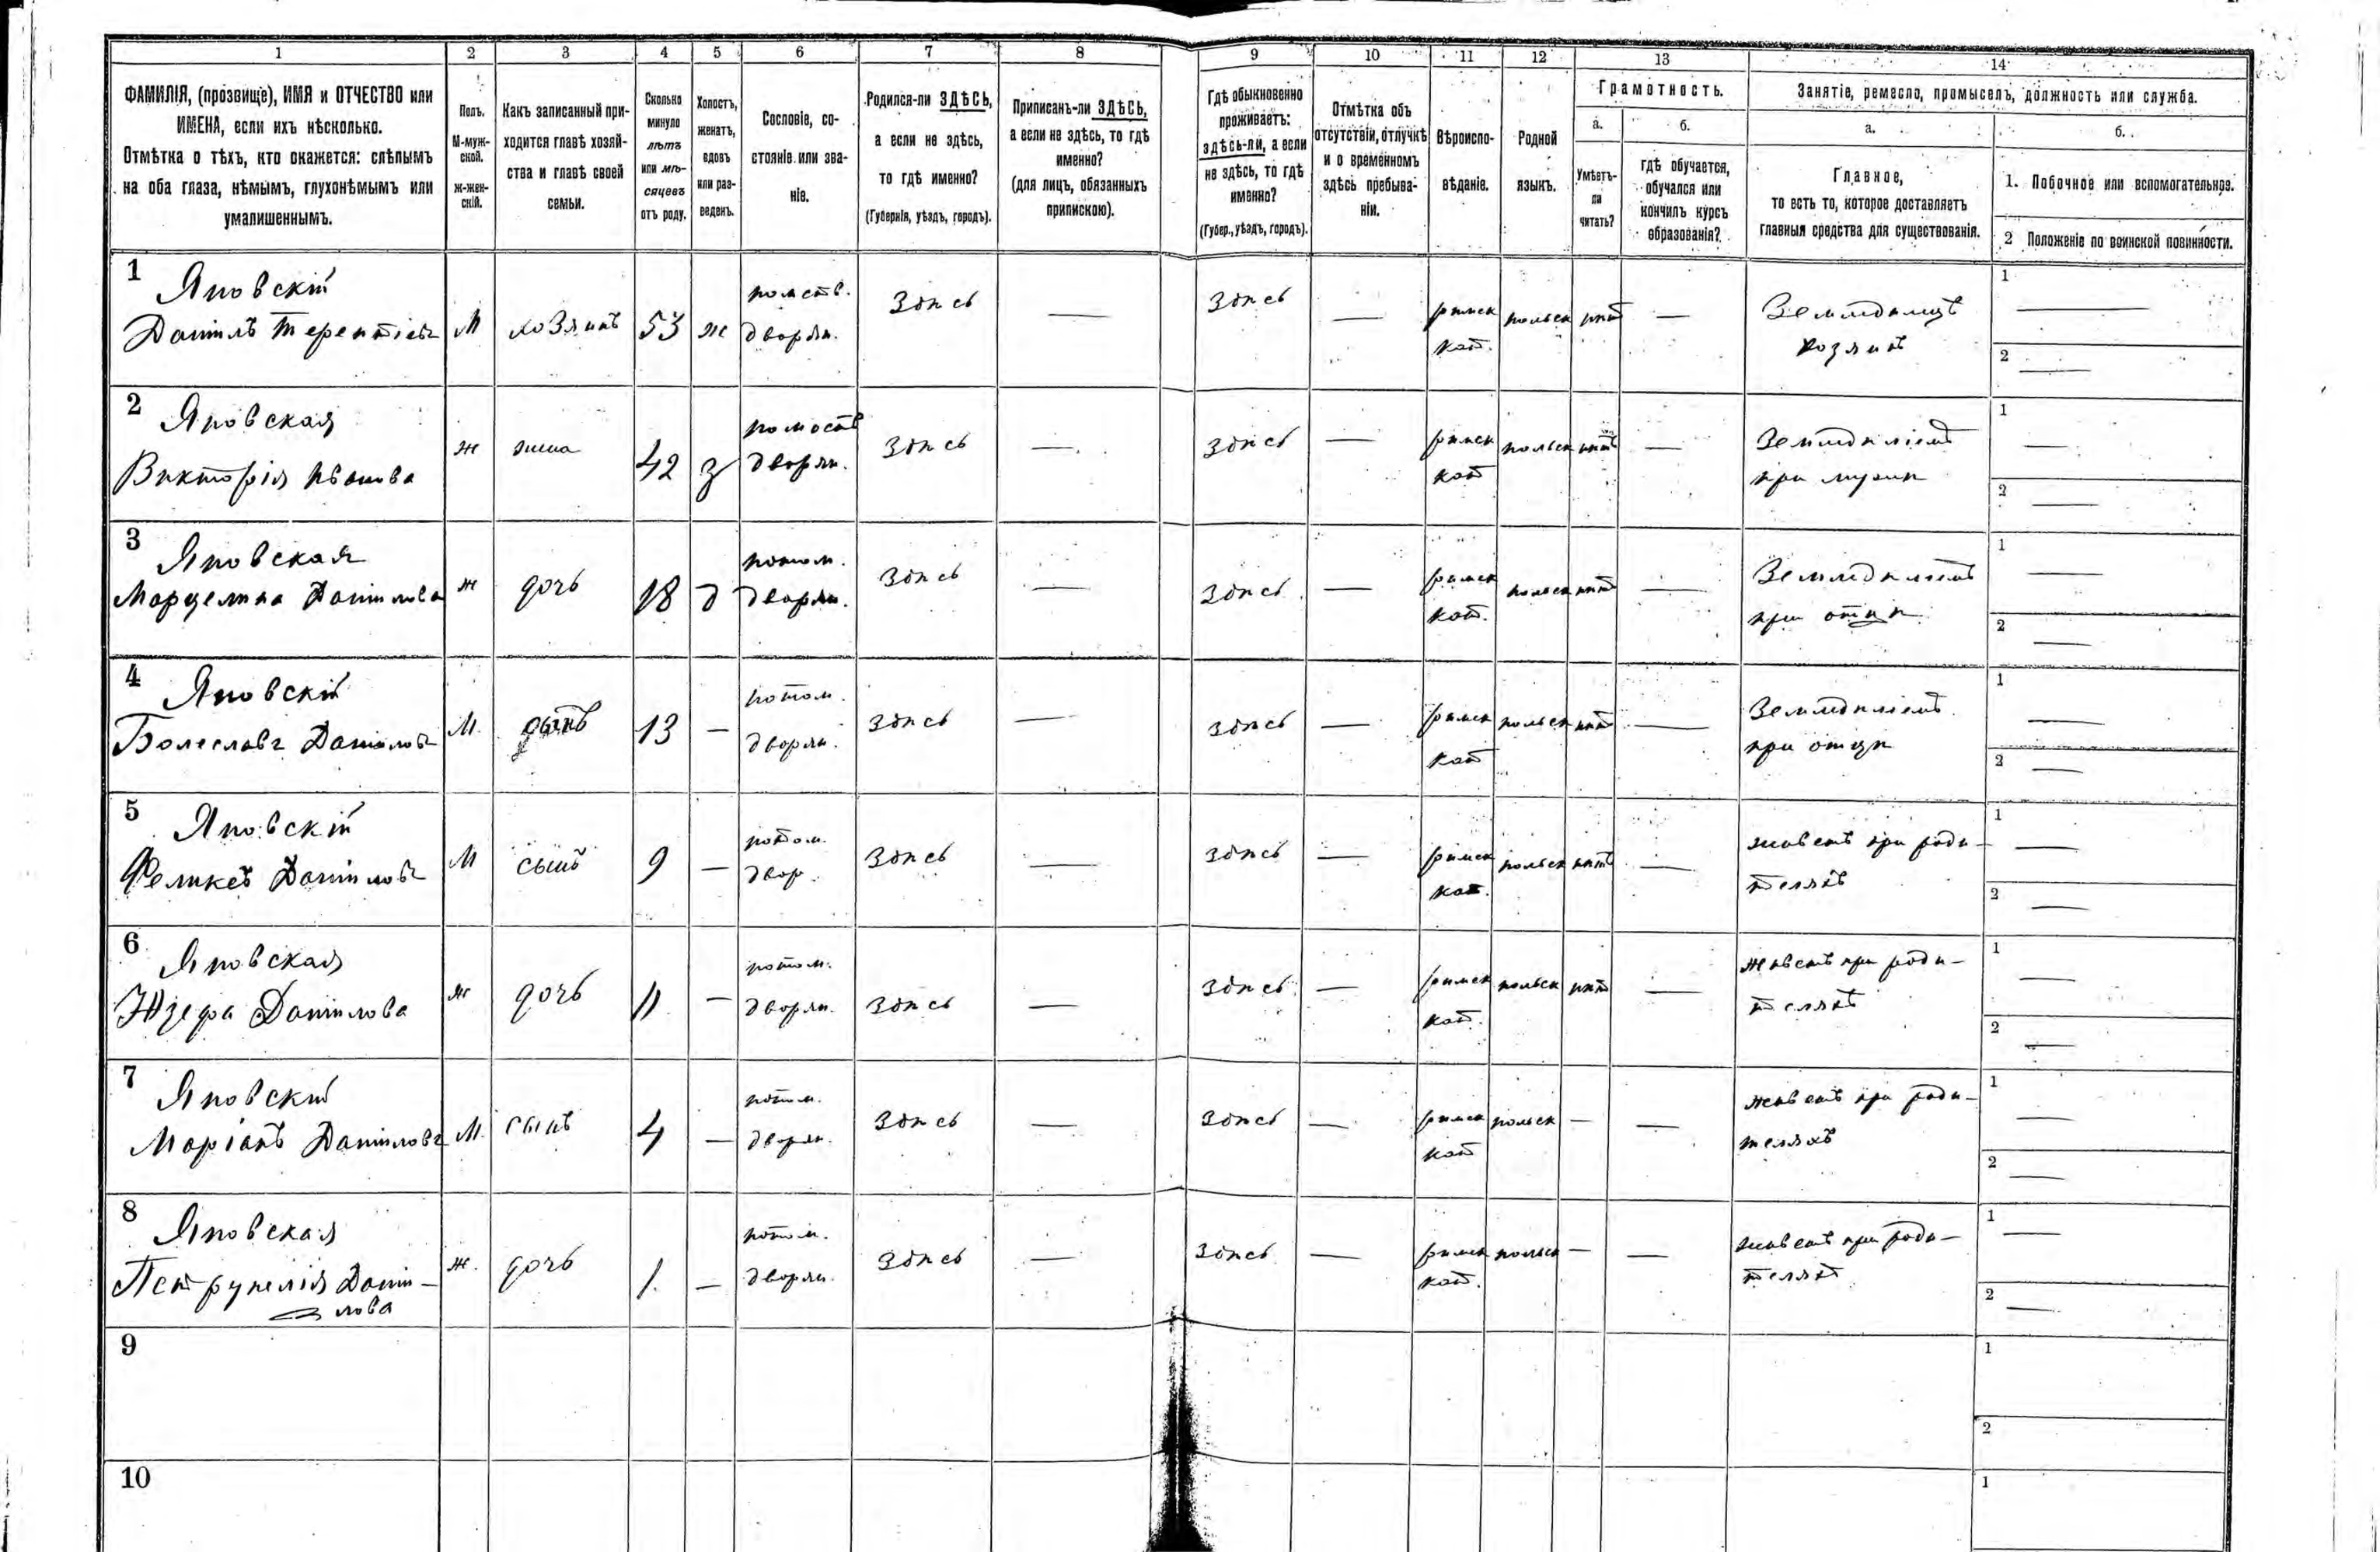 1 2 3 4 5 6 7 8 9 10 11 12 13 14
ФАМИЛІЯ, (прозвище), ИМЯ и ОТЧЕСТВО или
ИМЕНА, если ихъ нѣсколько.
Отмѣтка о тѣхъ, кто окажется: слѣпымъ
на оба глаза, нѣмымъ, глухонѣмымъ или
умалишеннымъ.
Полъ.
М-муж-
ской.
ж-жен-
скій.
Какъ записанный при-
ходится главѣ хозяй-
ства и главѣ своей
семьи.
Сколько
минуло
лѣтъ
или мѣ-
сяцевъ
отъ роду.
Холостъ,
женатъ,
вдовъ
или раз-
веденъ.
Сословіе, со-
стояніе или зва-
ніе.
Родился-ли ЗДѢСЬ,
а если не здѣсь,
то гдѣ именно?
(Губернія, уѣздъ, городъ).
Приписанъ-ли ЗДѢСЬ,
а если не здѣсь, то гдѣ
именно?
(для лицъ, обязанныхъ
припискою).
Гдѣ обыкновенно
проживаетъ:
здѣсь-ли, а если
не здѣсь, то гдѣ
именно?
(Губер., уѣздъ, городъ).
Отмѣтка объ
отсутствіи, отлучкѣ
и о временномъ
здѣсь пребыва-
ніи.
Вѣроиспо-
вѣданіе.
Родной
языкъ.
Грамотность.
а.
Умѣетъ-
ли
читать?
б.
гдѣ обучается,
обучался или
кончилъ курсъ
образованія?
Занятіе, ремесло, промыселъ, должность или служба.
а.
Главное,
то есть то, которое доставляетъ
главныя средства для существованія.
б.
1. Побочное или вспомогательное.
2 Положеніе по воинской повинности.
1 Яновскій
Даніилъ Терентіевъ М хозяинъ 53 ж
дворян. здѣсь — здѣсь — римск
кат. польск нѣт —
хозяинъ
1 —
2 —
2 Яновская
Викторія Иванова ж жена 42 з
дворян. здѣсь — здѣсь — римск
кат польск нѣтъ —
при мужѣ
1 —
2 —
3 Яновская
Марцелина Данилова ж дочь 18 д потом.
дворян. здѣсь — здѣсь — римск
кат. польск нѣт —
при отцѣ
1 —
2 —
4 Яновскій
Болеславъ Даниловъ М. сынъ 13 — потом.
дворян. здѣсь — здѣсь — римск
кат польск нѣт —
при отцѣ
1 —
2 —
5 Яновскій
Феликсъ Даниловъ М сынъ 9 — потом.
двор. здѣсь — здѣсь — римск
кат. польск нѣт —
живетъ при роди-
теляхъ
1 —
2 —
6 Яновская
Юзефа Данилова ж дочь 11 — потом.
дворян. здѣсь — здѣсь — римск
кат. польск нѣт —
живетъ при роди-
теляхъ
1 —
2 —
7 Яновскій
Маріанъ Даниловъ М. сынъ 4 — потом.
дворян. здѣсь — здѣсь — римск
кат польск — —
живетъ при роди-
теляхъ
1 —
2 —
8 Яновская
Петрунелія Дани-
лова ж. дочь 1. — потом.
дворян. здѣсь — здѣсь — римск
кат. польск — —
живетъ при роди-
теляхъ
1 —
2 —
9
1
2
10
1